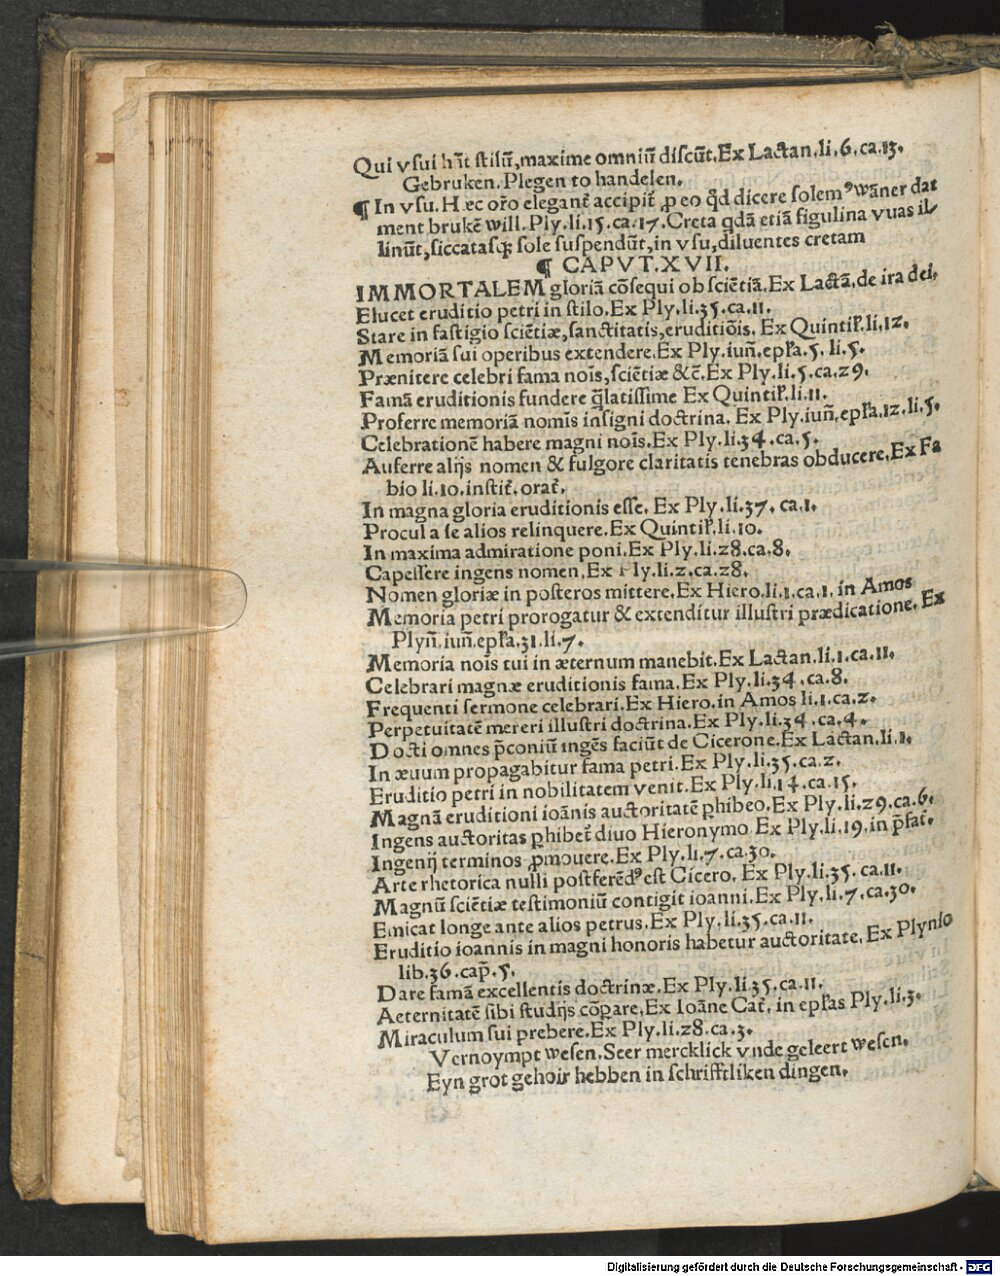 Qui vsui hāt stilū, maxime omniū discūt. Ex Lactan. li. 6. ca. 13.
Gebruken. Plegen to handelen.
¶ In vsu. Hæc or̃o elegant̃ accipit̃ ꝓ eo qd̃ dicere solemꝰ wāner dat
ment brukē will. Ply. li. 15. ca. 17. Creta qdā etiā figulina vuas il⸗
linūt, siccatasqꝫ sole suspendūt, in vsu, diluentes cretam
¶ CAPVT. XVII.
IMMORTALEM gloriā cōsequi ob sciētiā. Ex Lactā. de ira dei.
Elucet eruditio petri in stilo. Ex Ply. li. 35. ca. 11.
Stare in fastigio sciētiæ, sanctitatis, eruditiōis. Ex Quintił. li. 12.
Memoriā sui operibus extendere. Ex Ply. iuñ. epła. 5. li. 5.
Prænitere celebri fama noīs, sciētiæ &c̃. Ex Ply. li. 5. ca. 29.
Famā eruditionis fundere q̃latissime Ex Quintił. li. 11.
Proferre memoriā nomīs insigni doctrina. Ex Ply. iuñ. epła. 12. li. 5.
Celebrationē habere magni noīs. Ex Ply. li. 34. ca. 5.
Auferre alijs nomen & fulgore claritatis tenebras obducere. Ex Fa
bio li. 10. instit̃. orat̃.
In magna gloria eruditionis esse. Ex Ply. li. 37. ca. 1.
Procul a se alios relinquere. Ex Quintił. li. 10.
In maxima admiratione poni. Ex Ply. li. 28. ca. 8.
Capessere ingens nomen. Ex Ply. li. 2. ca. 28.
Nomen gloriæ in posteros mittere. Ex Hiero. li. 1. ca. 1. in Amos
Memoria petri prorogatur & extenditur illustri prædicatione. Ex
Plyñ. iuñ. epła. 31. li. 7.
Memoria noīs tui in æternum manebit. Ex Lactan. li. 1. ca. 11.
Celebrari magnæ eruditionis fama. Ex Ply. li. 34. ca. 8.
Frequenti sermone celebrari. Ex Hiero. in Amos li. 1. ca. 2.
Perpetuitatē mereri illustri doctrina. Ex Ply. li. 34. ca. 4.
Docti omnes p̄coniū ingēs faciūt de Cicerone. Ex Lactan. li. 1.
In æuum propagabitur fama petri. Ex Ply. li. 35. ca. 2.
Eruditio petri in nobilitatem venit. Ex Ply. li. 14. ca. 15.
Magnā eruditioni ioānis auctoritatē ꝑhibeo. Ex Ply. li. 29. ca. 6.
Ingens auctoritas ꝑhibet̃ diuo Hieronymo Ex Ply. li. 19. in p̄fat̃.
Ingenij terminos ꝓmouere. Ex Ply. li. 7. ca. 30.
Arte rhetorica nulli postferēdꝰ est Cicero. Ex Ply. li. 35. ca. 11.
Magnū sciētiæ testimoniū contigit ioanni. Ex Ply. li. 7. ca. 30.
Emicat longe ante alios petrus. Ex Ply. li. 35. ca. 11.
Eruditio ioannis in magni honoris habetur auctoritate. Ex Plynio
lib. 36. cap̃. 5.
Dare famā excellentis doctrinæ. Ex Ply. li. 35. ca. 11.
Aeternitatē sibi studijs cōꝑare. Ex Ioāne Cat̃. in epłas Ply. li. 3.
Miraculum sui prebere. Ex Ply. li. 28. ca. 3.
Vernoympt wesen. Seer mercklick vnde geleert wesen.
Eyn grot gehoir hebben in schrifftliken dingen.
Digitalisierung gefördert durch die Deutsche Forschungsgemeinschaft - DFG